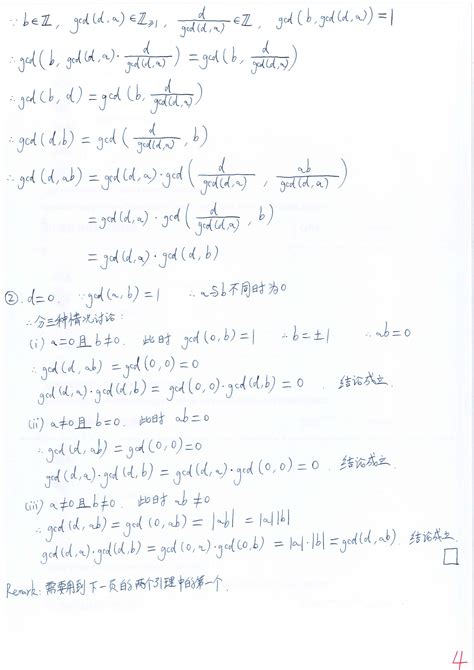 ∵ b∈ℤ, gcd(d,a)∈ℤ≥1, d/gcd(d,a) ∈ℤ, gcd(b,gcd(d,a))=1
∴ gcd(b, gcd(d,a)·d/gcd(d,a)) = gcd(b, d/gcd(d,a))
∴ gcd(b, d) = gcd(b, d/gcd(d,a))
∴ gcd(d,b) = gcd(d/gcd(d,a), b)
∴ gcd(d,ab) = gcd(d,a)·gcd(d/gcd(d,a), ab/gcd(d,a))
= gcd(d,a)·gcd(d/gcd(d,a), b)
= gcd(d,a)·gcd(d,b)
②. d=0. ∵ gcd(a,b)=1 ∴ a与b不同时为0
∴ 分三种情况讨论:
(i) a=0且b≠0. 此时 gcd(0,b)=1 ∴ b=±1 ∴ ab=0
∴ gcd(d,ab) = gcd(0,0)=0
gcd(d,a)·gcd(d,b) = gcd(0,0)·gcd(d,b) = 0. 结论成立.
(ii) a≠0且b=0. 此时 ab=0
∴ gcd(d,ab) = gcd(0,0)=0
gcd(d,a)·gcd(d,b) = gcd(d,a)·gcd(0,0) = 0. 结论成立.
(iii) a≠0且b≠0. 此时 ab≠0
∴ gcd(d,ab) = gcd(0,ab) = |ab| = |a||b|
gcd(d,a)·gcd(d,b) = gcd(0,a)·gcd(0,b) = |a|·|b| = gcd(d,ab). 结论成立.
□
Remark: 需要用到下一页的两个引理中的第一个.
4